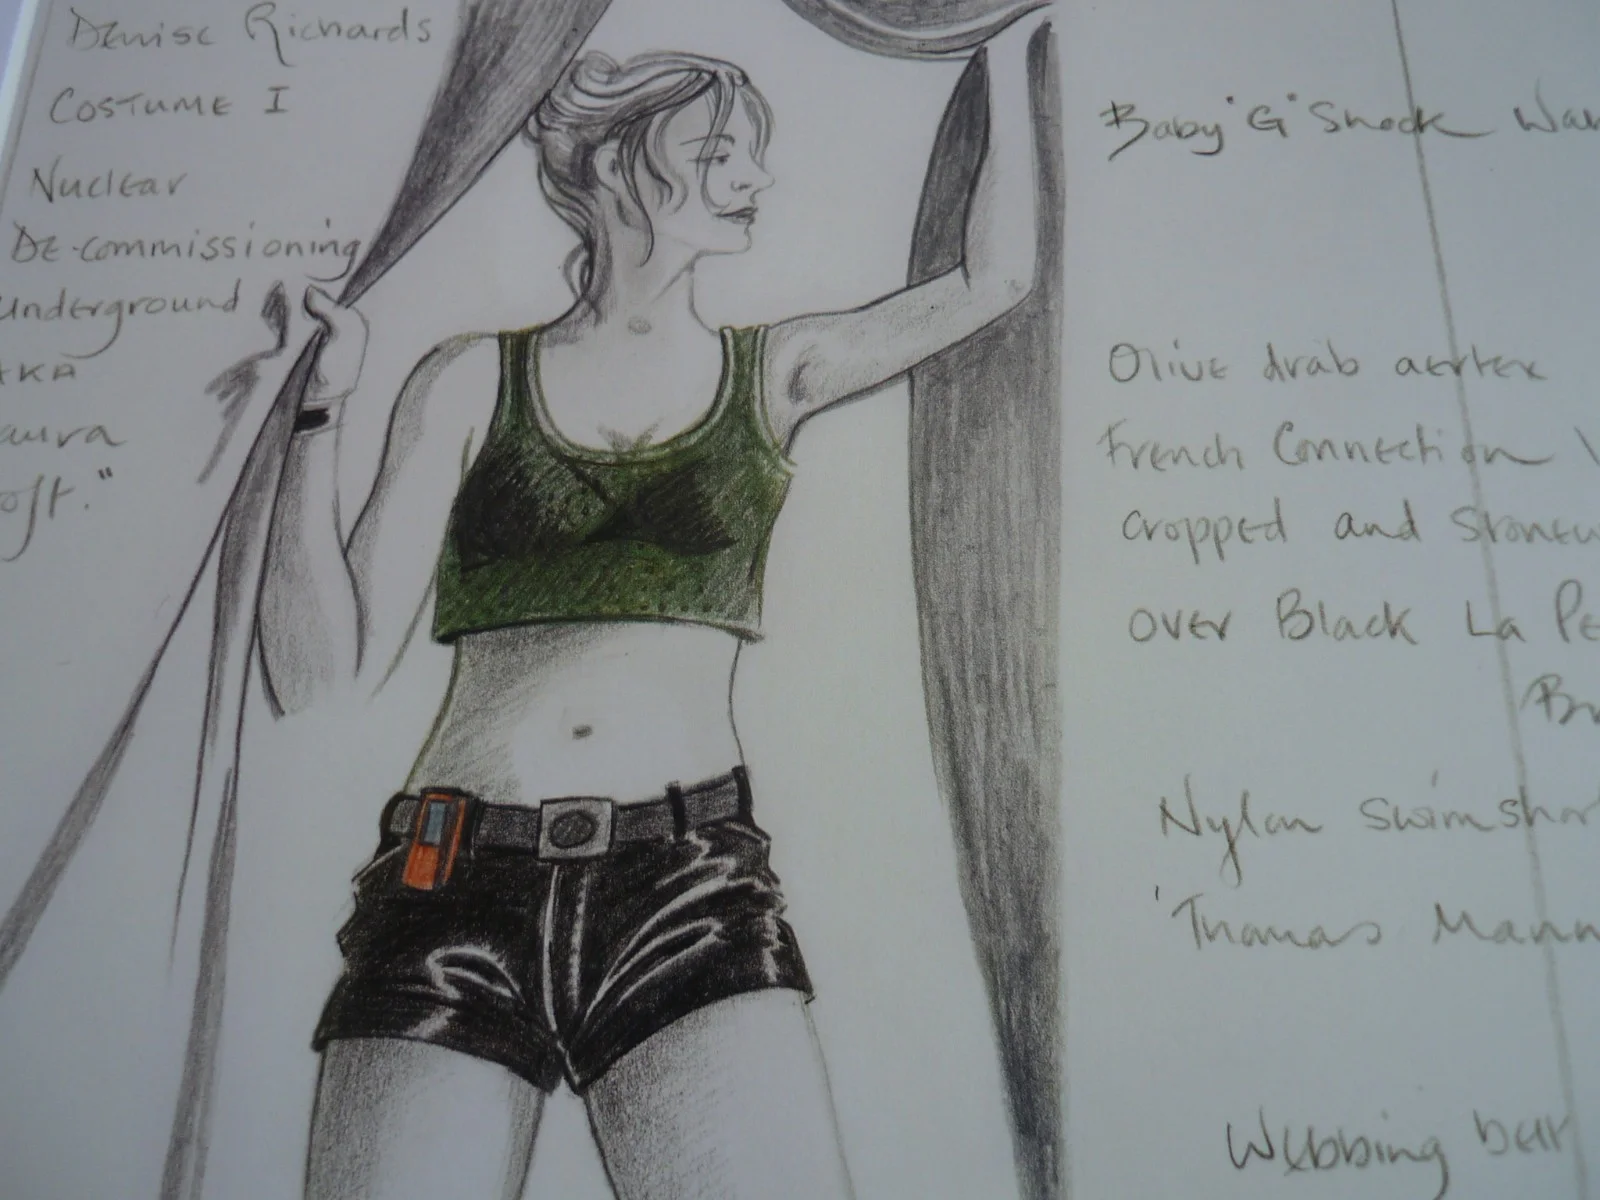 Denise Richards
Costume I
Nuclear
De-commissioning
underground
AKA
aura
oft."
Baby "G" Shock
Olive drab aertex
French Connection
cropped and
over Black La
Nylon swim
'Thomas
Webbing belt